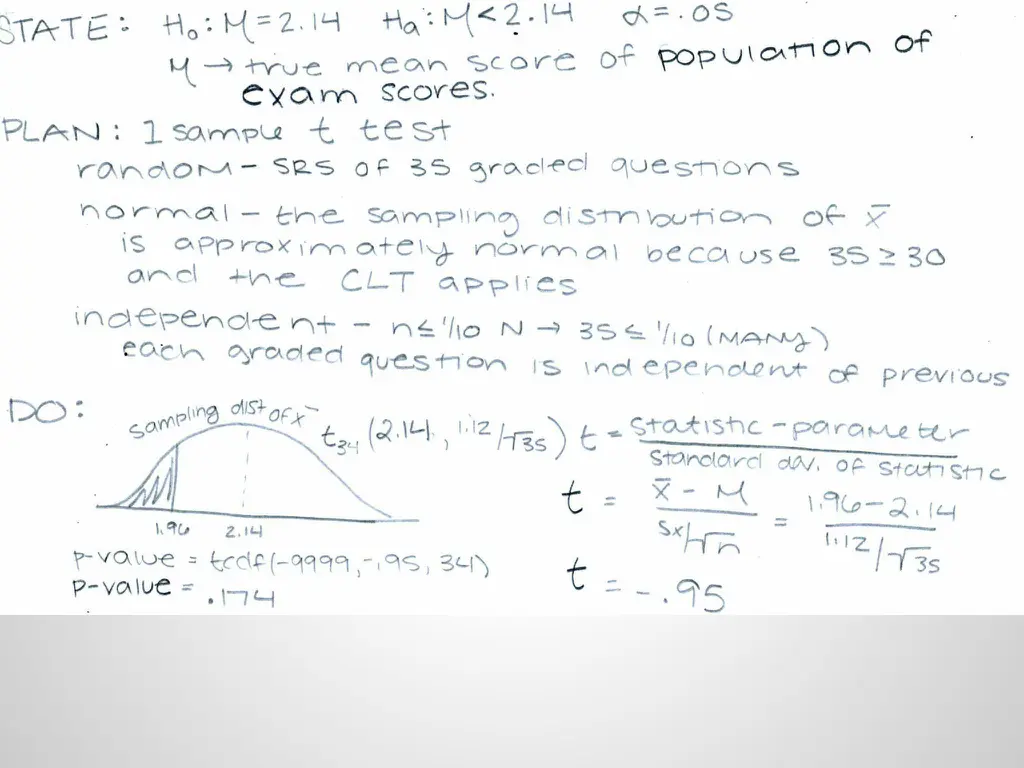 STATE: H₀: M = 2.14 Hₐ: M < 2.14 α = .05
M → true mean score of population of
exam scores.
PLAN: 1 sample t test
random - SRS of 35 graded questions
normal - the sampling distribution of x̄
is approximately normal because 35 ≥ 30
and the CLT applies
independent - n ≤ 1/10 N → 35 ≤ 1/10 (MANY)
each graded question is independent of previous
DO:
sampling dist of x̄
t₃₄ (2.14, 1.12/√35)
1.96 2.14
p-value = tcdf(-9999, -.95, 34)
p-value = .174
t = statistic - parameter / standard dev. of statistic
t = x̄ - M / sx/√n = 1.96 - 2.14 / 1.12/√35
t = -.95